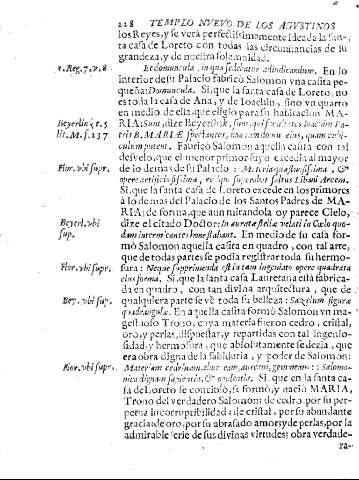 218 TEMPLO NUEVO DE LOS AGUSTINOS
los Reyes, y se verà perfectissimamente ideada la san-
ta casa de Loreto con todas las circunstancias de su
grandeza, y de nuestra solemnidad.
1. Reg. 7, v. 8.
Et domuncula, in qua sedebatur ad iudicandum. En lo
interior de su Palacio fabricò Salomon vna casita pe-
queña: Domuncula. Si, que la santa casa de Loreto, no
es toda la casa de Ana, y de Ioachin, sino vn quarto
en medio de ella, que eligiò para su habitacion MA-
Beyerlin. t. 5
lit. M. f. 137
RIA: Sunt, dize Beyerlink,
tris B. MARIAE spectantes, non tam domum eius, quam cubi-
culum putent. Fabricò Salomon aquella casita con tal
desvelo, que el menor primor suyo excedia al mayor
Flor. vbi supr.
de lo demas de su Palacio: Materia quæsitissima, &
opere artificiosissima, superabat saltus Libani Arcem.
Si, que la santa casa de Loreto excede en los primores
à lo demas del Palacio de los Santos Padres de MA-
RIA: de forma, que aun mirandola oy parece Cielo,
Beyerl. vbi
sup.
dize el citado Doctor: In aurata stellæ velati in Cælo quo-
dam intermicantes honestabant. En medio de su casa for-
mò Salomon aquella casita en quadro, con tal arte,
que de todas partes se podia registrar toda su hermo-
Flor. vbi supr.
sura: Neque supprimenda est in tam ingeniato opere quadrata
eius forma. Si, que la santa casa Lauretana està fabrica-
da en quadro, con tan divina arquitectura, que de
Bey. vbi sup.
qualquiera parte se vè toda su belleza: Sacellum figuræ
quadrangulæ. En aquella casita formò Salomon vn ma-
gestuoso Trono, cuya materia fueron cedro, cristal,
oro, y perlas, dispuestas, y repartidas con tal ingenio-
sidad, y hermosura, que absolutamente se dezia, que
era obra digna de la sabiduria, y poder de Salomon:
Flor. vbi supr.
Materiam cedrinam, eburneam, auream, gemmeam:: Salomo-
nica dignam sapientia, & opulentia. Si, que en la santa ca-
sa de Loreto se concibiò, se formò, y naciò MARIA,
Trono del verdadero Salomon: de cedro por su per-
petua incorruptibilidad: de cristal, por su abundante
gracia: de oro, por su abrasado amor; y de perlas, por la
admirable serie de sus divinas virtudes: obra verdade-
ra-